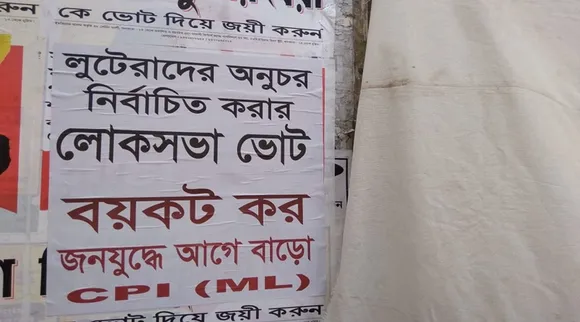 কে ভোট দিয়ে জয়ী করুন
লুটেরাদের অনুচর
নির্বাচিত করার
লোকসভা ভোট
বয়কট কর
জনযুদ্ধে আগে বাড়ো
CPI (ML)
কে ভোট দিয়ে জয়ী করুন